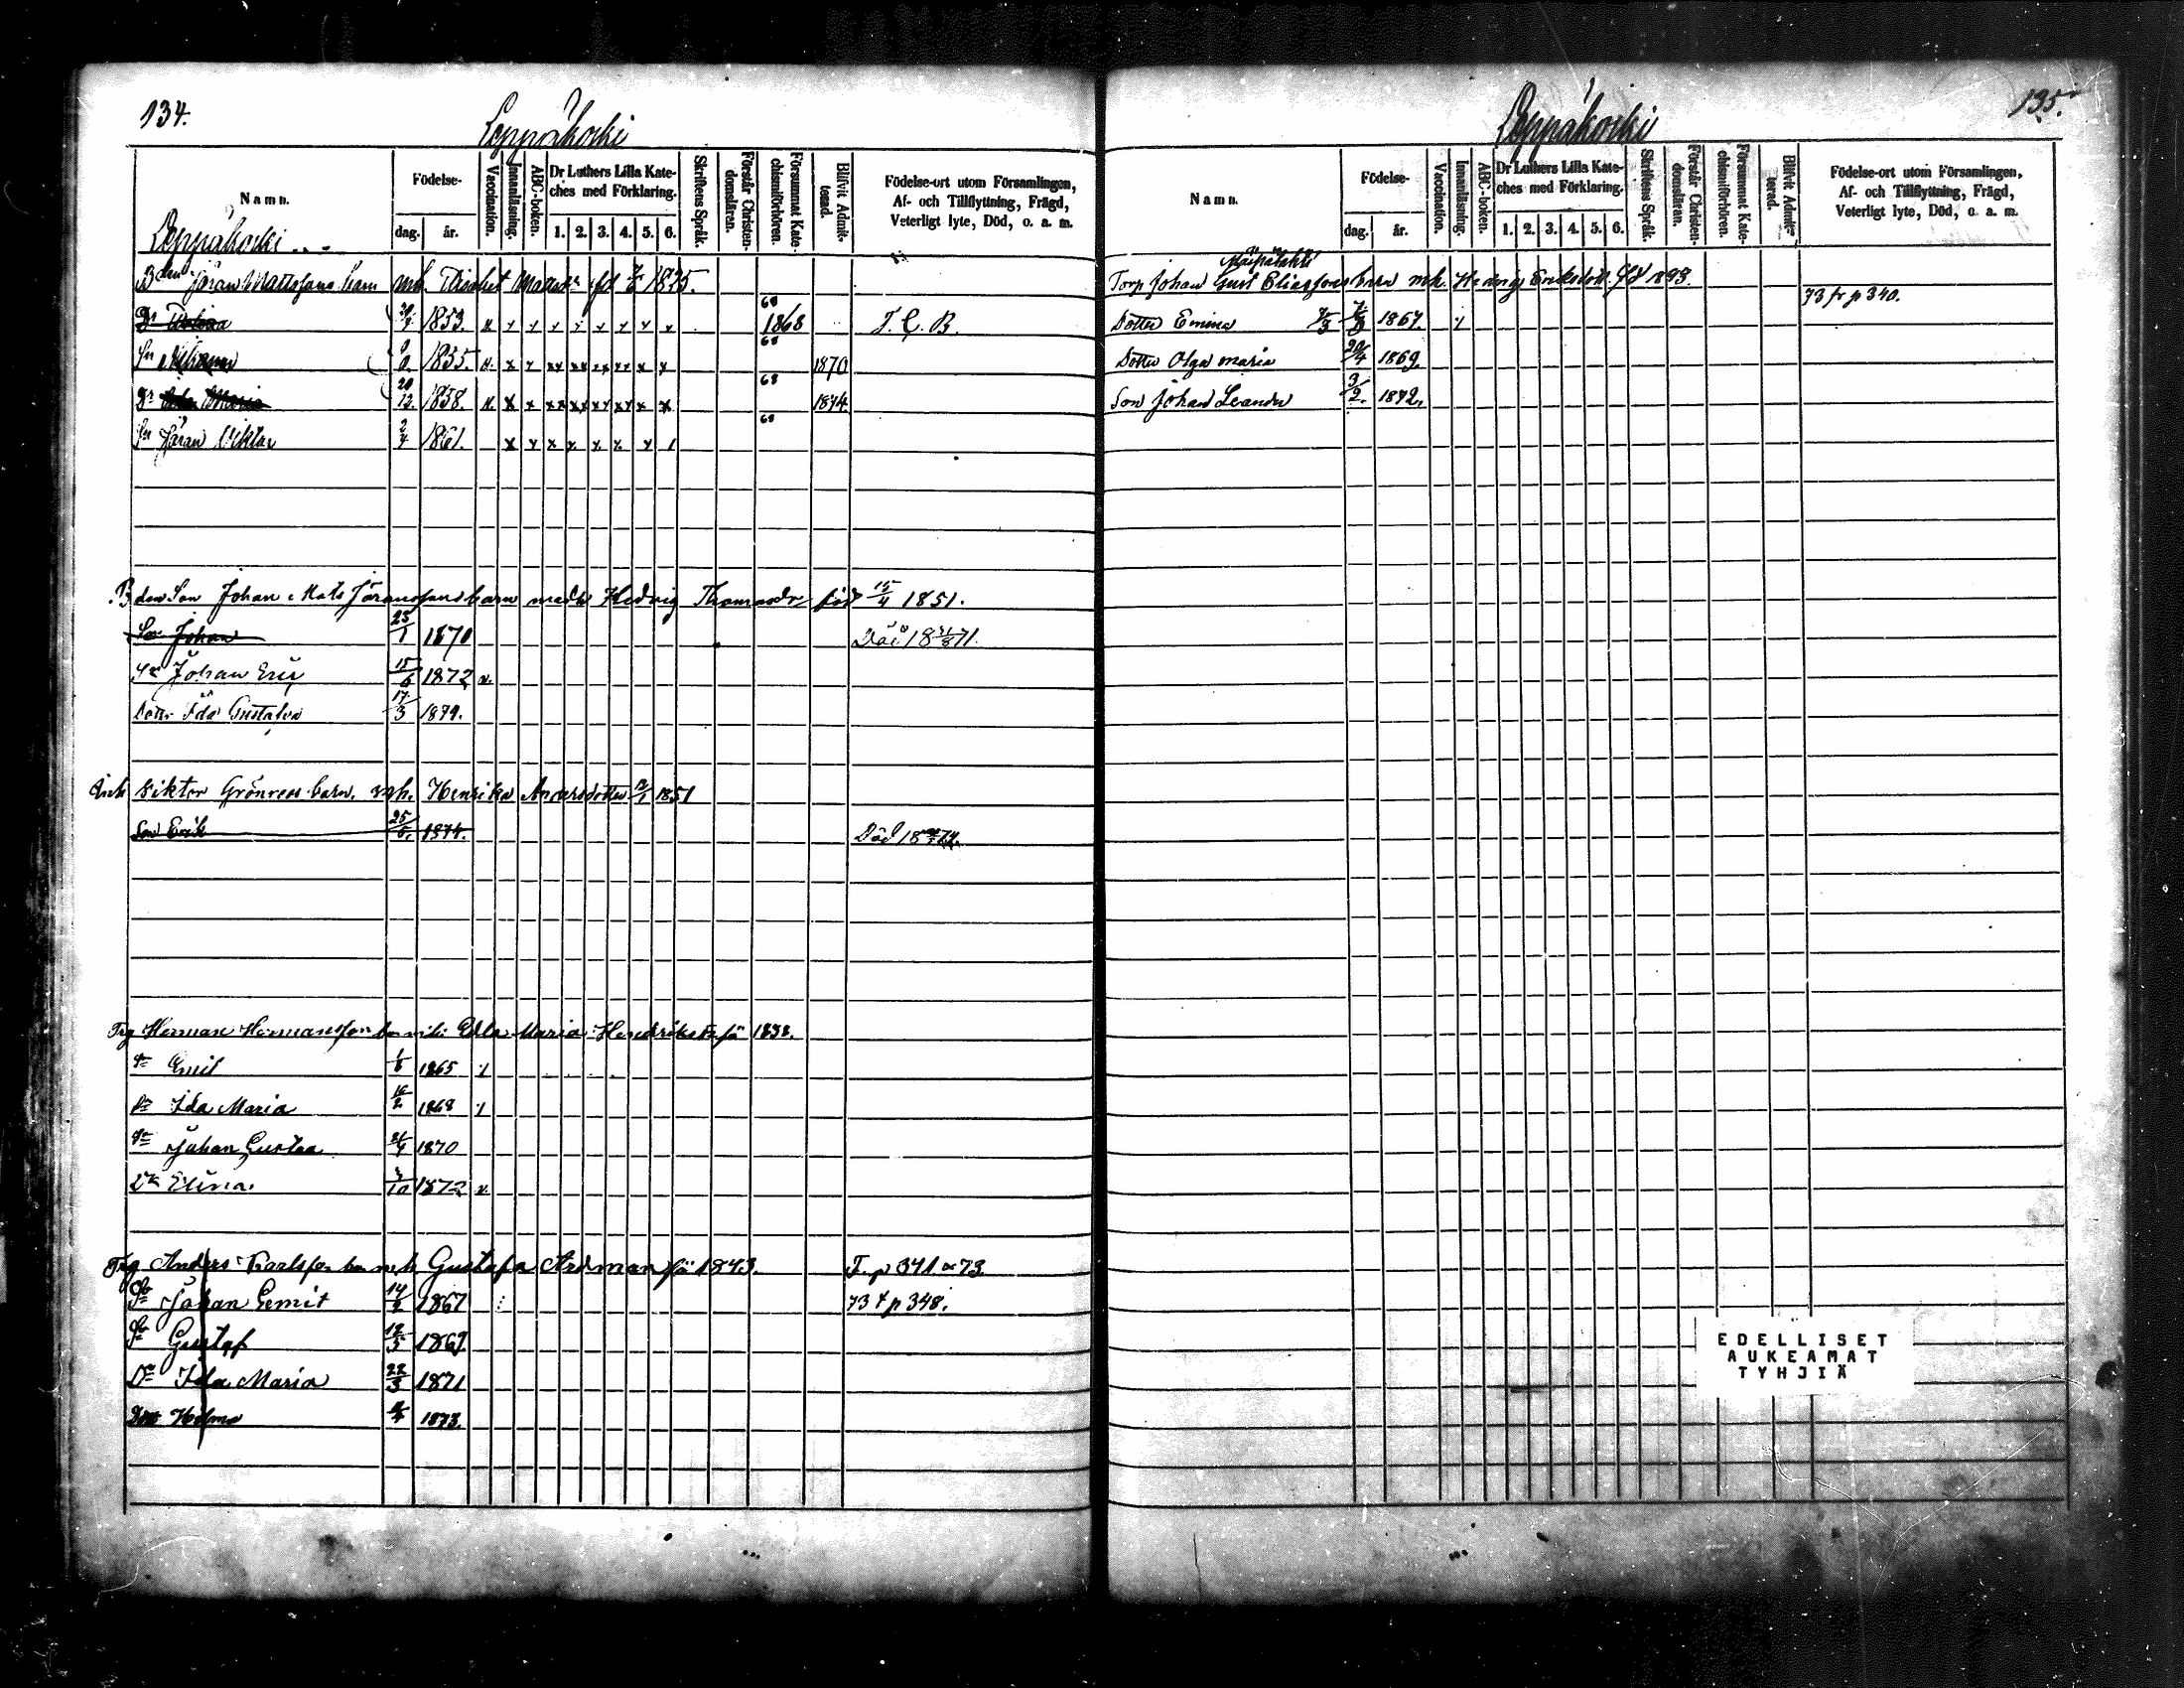 134.
Leppäkoski
Namn.
Födelse-
dag.
år.
Vaccination.
Innanläsning.
ABC-boken.
Dr Luthers Lilla Kate-
ches med Förklaring.
1. 2. 3. 4. 5. 6.
Skriftens Språk.
Förstår Christen-
domsläran.
Försummat Kate-
chismiförhören.
Blifvit Admit-
terad.
Födelse-ort utom Församlingen,
Af- och Tillflyttning, Frägd,
Veterligt lyte, Död, o. a. m.
Leppäkoski
Bden Jöran Mattssons barn mh. Elisabet fd 1825.
Dr 1853. x x x x x x x x x 68 1868 T. C. B.
Sn Johan 1835. x x x xx xx xx xx x x 68 1870
Dr Maria 20/12. 1858. x x x xx xx xx xx x x 68 1874
Sn Jöran Viktor 2/4 1861. x x x x x x x 1 68
Bden Son Johan Mats Jöranssons barn med h Hedvig Thomasdr född 15/4 1851.
Son Johan 23/1 1870 Död 18 71.
Sn Johan Eric 15/6 1872 x.
Dotter Ida Gustafva 17/3 1874.
Viktor Grönroos barn. mh. Henrika Andersdotter 1851
Son Erik 25/6. 1874. Död 18 74.
Trp Herman Hermansson barn mh: Edla Maria Hendriksdr fö 1833.
Sn Emil 1/6 1865 1
Dr Ida Maria 16/2 1868 1
Sn Johan Gustaa 21/4 1870
Dr Elina 3/10 1872 x.
Trp Anders Karlsson barn mh Gustafa Ardman fö 1843. T. p 341 73.
Sn Johan Eemit 14/2 1867 73 t p 348.
Sn Gustaf 19/5 1869
Dr Ida Maria 22/3 1871
Dotter Helma 1873.
135.
Leppäkoski
Namn.
Födelse-
dag.
år.
Vaccination.
Innanläsning.
ABC-boken.
Dr Luthers Lilla Kate-
ches med Förklaring.
1. 2. 3. 4. 5. 6.
Skriftens Språk.
Förstår Christen-
domsläran.
Försummat Kate-
chismiförhören.
Blifvit Admit-
terad.
Födelse-ort utom Församlingen,
Af- och Tillflyttning, Frägd,
Veterligt lyte, Död, o. a. m.
Torp Johan Gust Eliassons barn mh. Hedvig Eriksdott. fd
73 fr p 340.
Dotter Emma 1867. 1
Dotter Olga Maria 20/4 1869.
Son Johan Leander 3/2. 1872.
EDELLISET
AUKEAMAT
TYHJIÄ